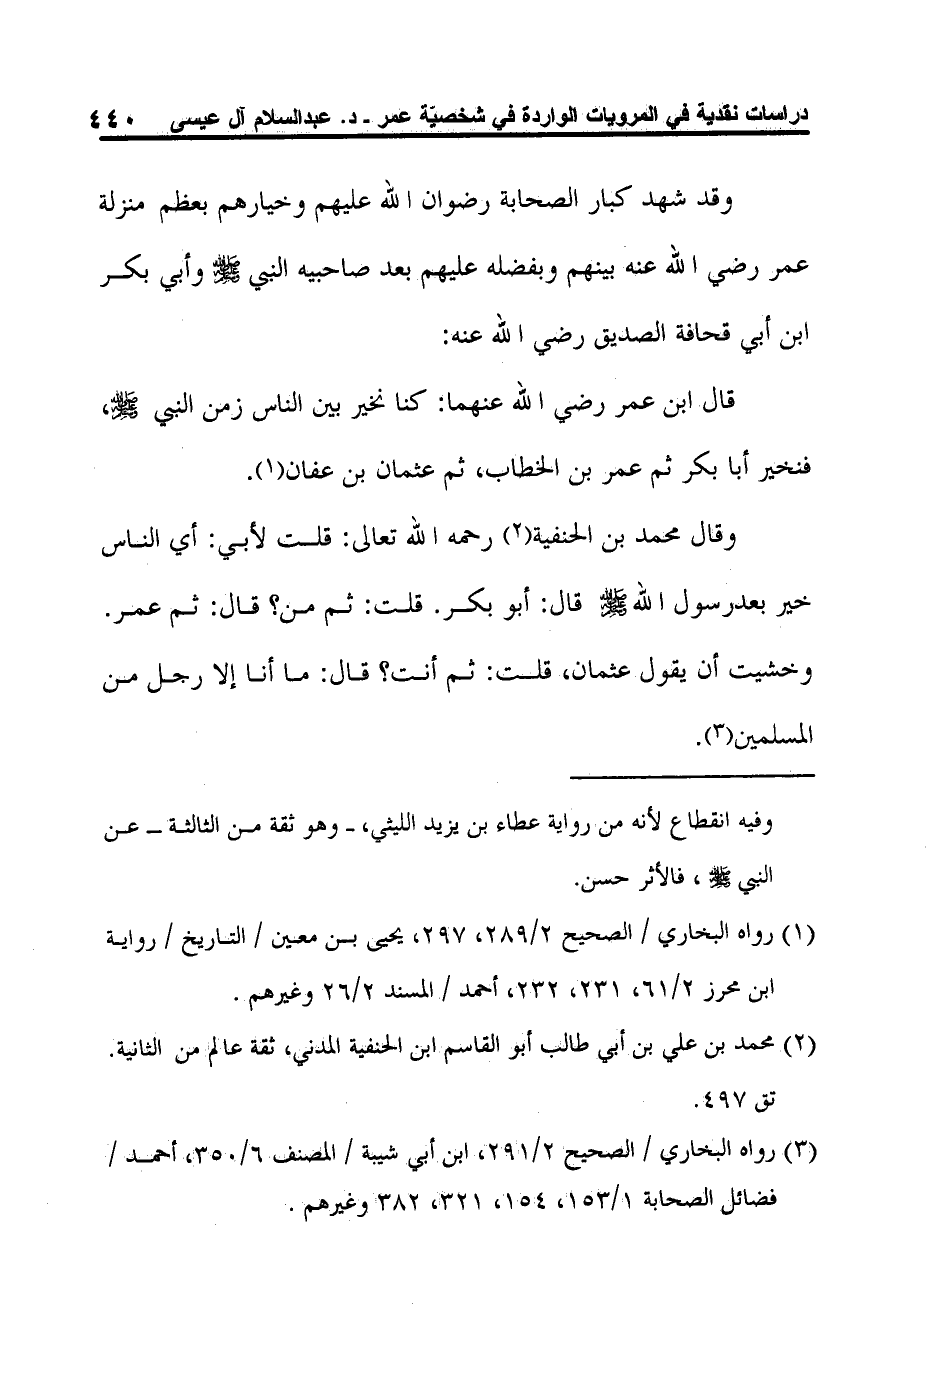 دراسات نقدية في المرويات الواردة في شخصيّة عمر ـ د. عبدالسلام آل عيسى ٤٤٠
وقد شهد كبار الصحابة رضوان الله عليهم وخيارهم بعظم منزلة
عمر رضي الله عنه بينهم وبفضله عليهم بعد صاحبيه النبي ﷺ وأبي بكر
ابن أبي قحافة الصديق رضي الله عنه:
قال ابن عمر رضي الله عنهما: كنا نخير بين الناس زمن النبي ﷺ،
فنخير أبا بكر ثم عمر بن الخطاب، ثم عثمان بن عفان(١).
وقال محمد بن الحنفية(٢) رحمه الله تعالى: قلت لأبي: أي الناس
خير بعدرسول الله ﷺ قال: أبو بكر. قلت: ثم من؟ قال: ثم عمر.
وخشيت أن يقول عثمان، قلت: ثم أنت؟ قال: ما أنا إلا رجل من
المسلمين(٣).
وفيه انقطاع لأنه من رواية عطاء بن يزيد الليثي، ـ وهو ثقة من الثالثة ـ عن
النبي ﷺ ، فالأثر حسن.
(١) رواه البخاري / الصحيح ٢٨٩/٢، ٢٩٧، يحيى بن معين / التاريخ / رواية
ابن محرز ٦١/٢، ٢٣١، ٢٣٢، أحمد / المسند ٢٦/٢ وغيرهم .
(٢) محمد بن علي بن أبي طالب أبو القاسم ابن الحنفية المدني، ثقة عالم من الثانية.
تق ٤٩٧.
(٣) رواه البخاري / الصحيح ٢٩١/٢، ابن أبي شيبة / المصنف ٣٥٠/٦، أحمد /
فضائل الصحابة ١٥٣/١، ١٥٤، ٣٢١، ٣٨٢ وغيرهم .